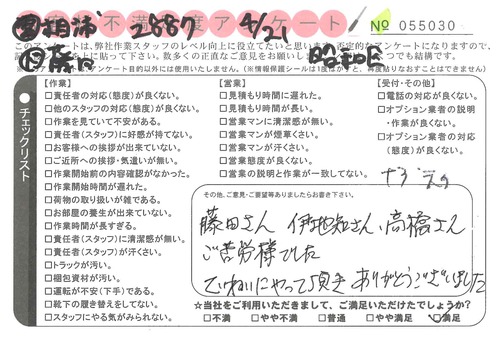 不満度アンケート
2887 4/21
№ 055030
このアンケートは、弊社作業スタッフのレベル向上に役立てたいと思います。否定的なアンケートになりますので、
上に貼って下さい。数多くの正直なご意見をお願いし
アンケート目的以外には使用いたしません。(※情報保護シールは1度はがすと、再度貼りなおすことはできません)
チェックリスト
【作業】
□責任者の対応(態度)が良くない。
□他のスタッフの対応(態度)が良くない。
□作業を見ていて不安がある。
□責任者(スタッフ)に好感が持てない。
□お客様への挨拶が出来ていない。
□ご近所への挨拶・気遣いが無い。
□作業開始前の内容確認がなかった。
□作業開始時間が遅れた。
□荷物の取り扱いが雑である。
□お部屋の養生が出来ていない。
□作業時間が長すぎる。
□責任者(スタッフ)に清潔感が無い。
□責任者(スタッフ)が汗くさい。
□トラックが汚い。
□梱包資材が汚い。
□運転が不安(下手)である。
□靴下の履き替えをしてない。
□スタッフにやる気がみられない。
【営業】
□見積もり時間に遅れた。
□見積もり時間が長い。
□営業マンに清潔感が無い。
□営業マンが煙草くさい。
□営業マンが汗くさい。
□営業態度が良くない。
□営業の説明と作業が一致してない。
【受付・その他】
□電話の対応が良くない。
□オプション業者の説明
・作業が良くない。
□オプション業者の対応
(態度)が良くない。
その他、ご意見・ご要望等ありましたらお書き下さい。
藤田さん 伊地知さん、高橋さん
ご苦労様でした
ていねいにやって頂き ありがとうございました
☆当社をご利用いただきまして、ご満足いただけたでしょうか?
□不満 □やや不満 □普通 □やや満足 □満足